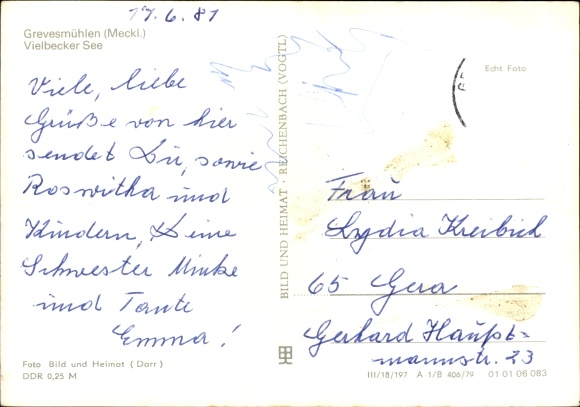 17.6.81
Grevesmühlen (Meckl.)
Vielbecker See
Viele, liebe
Grüße von hier
sendet Dir, sowie
Roswitha und
Kindern, Deine
Schwester Minke
und Tante
Emma!
Foto Bild und Heimat (Darr)
DDR 0,25 M
BILD UND HEIMAT · REICHENBACH (VOGTL)
Echt Foto
Frau
Lydia Kreibich
65 Gera
Gerhard Haupt-
mannstr. 23
III/18/197 A 1/B 406/79 01 01 06 083